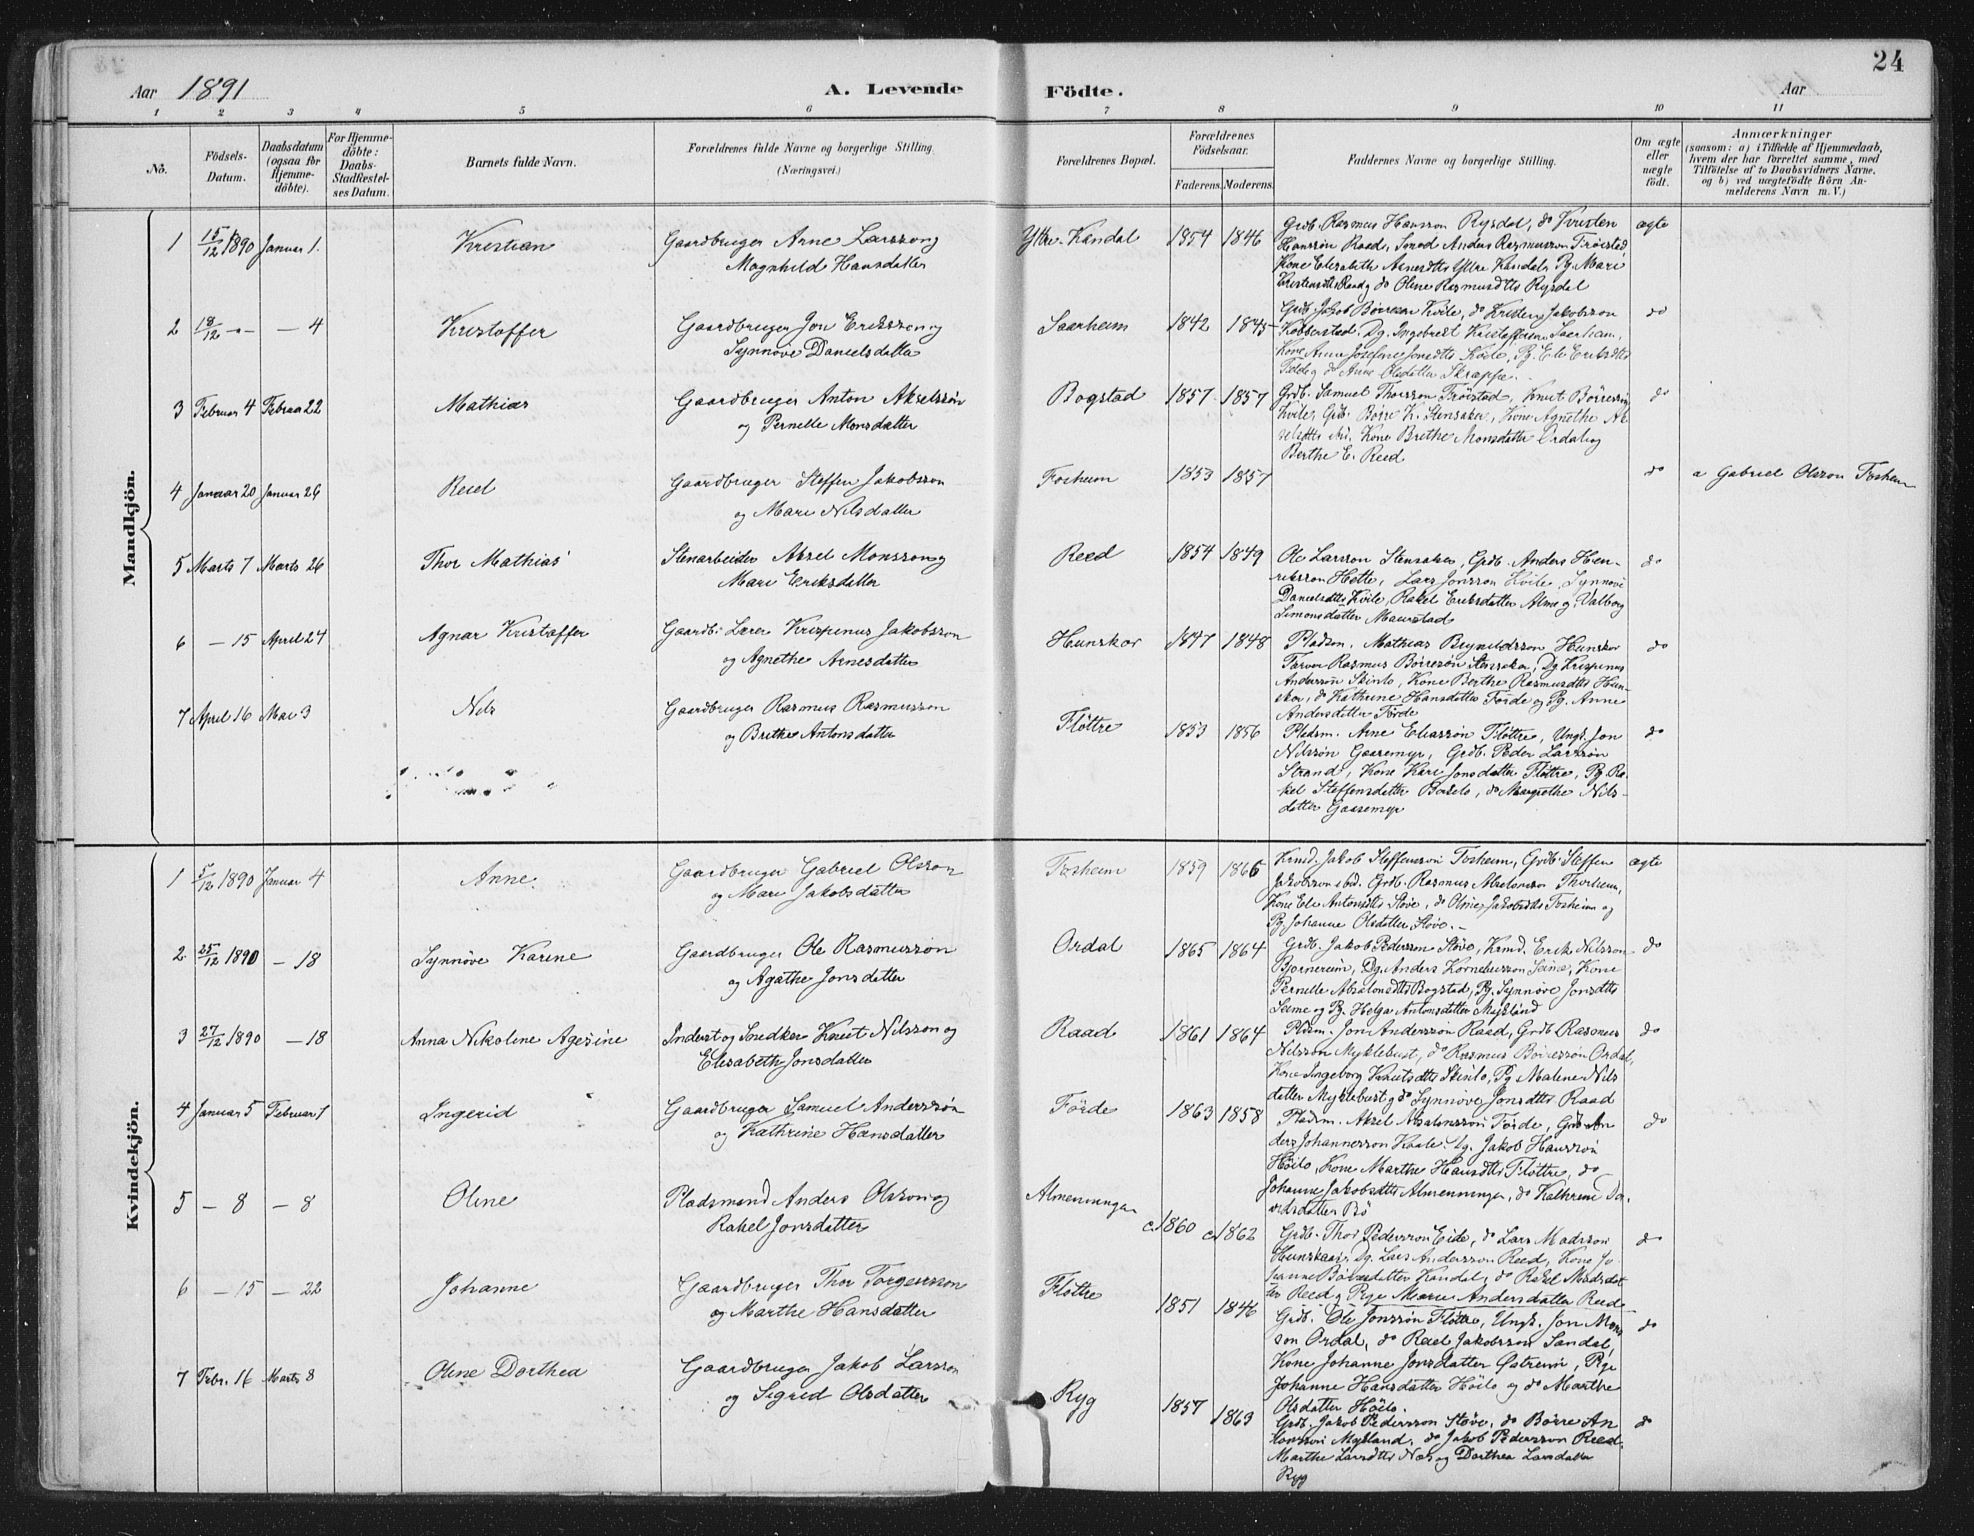 24
Aar 1891
A. Levende
Födte.
Aar
1 2 3 4 5 6 7 8 9 10 11
No.
Födsels-
Datum.
Daabsdatum
(ogsaa for
Hjemme-
döbte).
For Hjemme-
döbte:
Daabs-
Stadfæstel-
ses Datum.
Barnets fulde Navn.
Forældrenes fulde Navne og borgerlige Stilling.
(Næringsvei.)
Forældrenes Bopæl.
Forældrenes
Födselsaar.
Faderens. Moderens.
Faddernes Navne og borgerlige Stilling.
Om ægte
eller
uægte
födt.
Anmærkninger
(saasom: a) i Tilfælde af Hjemmedaab,
hvem der har forrettet samme, med
Tilföielse af to Daabsvidners Navne,
og b) ved uægtefödte Börn An-
melderens Navn m. V.)
Mandkjön.
1 15/12 1890 Januar 1. Kristian Gaardbruger Arne Larsson og
Magnhild Hansdatter
Ytre-Kandal 1854 1846
Grdb. Rasmus Hansson Rygdal, do Kristen
Hansson Raad, Smed Anders Rasmusson Tröistad
Kone Elisabeth Arnesdtr Ytre Kandal, Pg. Mari
Kristensdtr Raad og do Oline Rasmusdtr Rygdal
ægte
2 18/12 — — 4 Kristoffer Gaardbruger Jon Eriksson og
Synnöve Danielsdatter
Saarheim 1842 1845
Grdb. Jakob Börreson Kvile, do Kristen Jakobsson
Kobberstad. Dg. Ingebregt Kristoffersen
Kone Anne Josefine Jonsdtr Kvile, Pg. Eli Eriksdtr
og do Anne Olsdatter Skræppe.
do
3 Februar 4 Februar 22 Mathias Gaardbruger Anton Akselssön
og Pernelle Monsdatter
Bogstad 1857 1857
Grdb. Samuel Thorsson Tröstad, Knut Börresson
Kvile, Grdb. Börre K. Stensaker, Kone Agnethe Ak-
selsdtr Kone Brethe Monsdatter Ordal og
Berthe E. Reed
do
4 Januar 20 Januar 26 Reiel Gaardbruger Steffen Jakobsson
og Mari Nilsdatter
Fosheim 1853 1857
do
a Gabriel Olsson Fosheim
5 Marts 7 Marts 26 Thor Mathias Stenarbeider Aksel Monsson og
Mari Eriksdatter
Reed 1854 1849
Ole Larsson Stensaker, Grdb. Anders Hen-
riksson Hette, Lars Jonsson Kvile, Synnöve
Danielsdtr Kvile, Rakel Eriksdatter Alme og Valborg
Simonsdatter Maurstad
do
6 — 15 April 24 Agnar Kristoffer Gaardb. Lærer Krispinus Jakobsson
og Agnethe Arnesdatter
Hunskor 1847 1848
Pladsm. Mathias Brynildsson Hunskor
Farver Rasmus Börresön Stensaker, Dg. Krispinus
Anderssön Skinlo, Kone Berthe Rasmusdtr Hun-
skor, do Kathrine Hansdatter Förde og Pg. Anne
Andersdatter Förde
do
7 April 16 Mai 3 Nils Gaardbruger Rasmus Rasmusson
og Brithe Antonsdatter
Flöttre 1853 1856
Pladsm. Arne Eliassön Flöttre, Ungk. Jon
Nilssön Gaasemyr, Grdb. Peder Larssön
Strand, Kone Kari Jonsdatter Flöttre, Pg. Ra-
kel Steffensdatter do Margrethe Nils-
datter Gaasemyr
do
Kvindekjön.
1 5/12 1890 Januar 4 Anne. Gaardbruger Gabriel Olsson
og Mari Jakobsdatter
Fosheim 1859 1866
Krmd. Jakob Steffensson Fosheim, Grdb. Steffen
Jakobsson ibid. Grdb. Rasmus Absalonson Thorheim,
Kone Eli Antonsdtr Stöve, do Oline Jakobsdtr Fosheim og
Pg. Johanne Olsdatter Stöve. —
ægte
2 25/12 1890 — 18 Synnöve Karine Gaardbruger Ole Rasmussön
og Agathe Jonsdatter
Ordal 1865 1864
Grdb. Jakob Pedersson Stöve, Krmd. Erik Nilsson
Bjornereim, Dg. Anders Korneliusson Seime, Kone
Pernelle Absalonsdtr Bogstad, Pg. Synnöve Jonsdtr
Seime og Pg. Helga Antonsdatter Mykland
do
3 27/12 1890 — 18 Anna Nikoline Agesine Inderst og Snedker Knut Nilsson og
Elisabeth Jonsdatter
Raad 1861 1864
Pladsm. Jon Anderssön Raad, Grdb. Rasmus
Nilsson Myklebust, do Rasmus Börressön Ordal,
Kone Ingeborg Knutsdtr Skinlo, Pg. Malene Nils
datter Myklebust og do Synnöve Jonsdtr Raad
do
4 Januar 5 Februar 1 Ingerid Gaardbruger Samuel Anderssön
og Kathrine Hansdatter
Förde 1863 1858
Pladsm. Aksel Absalonssön Förde, Grdb. An
ders Johannesson Kaale. Dg. Jakob Hanssön
Höilo, Kone Marthe Hansdtr Flöttre, do
Johanne Jakobsdtr Almenningen, do Kathrine Da-
vidsdatter Bö
do
5 — 8 — 8 Oline Pladsmand Anders Olsson og
Rakel Jonsdatter
Almenningen c. 1860 c. 1862
Grdb. Thor Pedersson Eide, do Lars Madsson
Hunskaar, Dg. Lars Andersson Reed, Kone Jo
hanne Börresdatter Kandal, do Rakel Madsdat
ter Reed og Pige Marie Andersdatter Reed
do
6 — 15 — 22 Johanne Gaardbruger Thor Torgersson
og Marthe Hansdatter
Flöttre 1851 1846
Grdb. Ole Jonssön Flöttre, Ungk. Jon Mons
son Ordal, do Reiel Jakobsson Sandal,
Kone Johanne Jonsdatter Pige
Johanne Hansdatter Höilo og do Marthe
Olsdatter Höilo.
do
7 Febr. 16 Marts 8 Oline Dorthea Gaardbruger Jakob Larsson
og Sigrid Olsdatter
Ryg 1857 1863
Grdb. Jakob Pedersson Stöve, do Börre An
tonsson Mykland, do Jakob Pedersson Reed,
Marthe Larsdtr Nes og Dorthea Larsdatter
Ryg
do